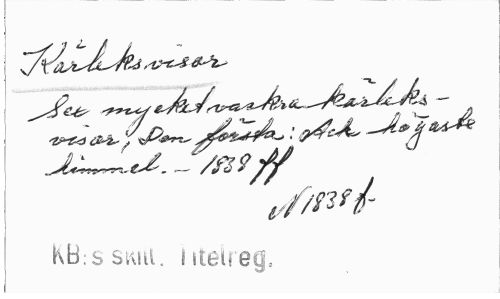 Kärleksvisor
Sex mycket vackra kärleks-
visor, Den första: Ack högaste
himmel. - 1838 ff
N 1838 f-
KB:s skill. Titelreg.